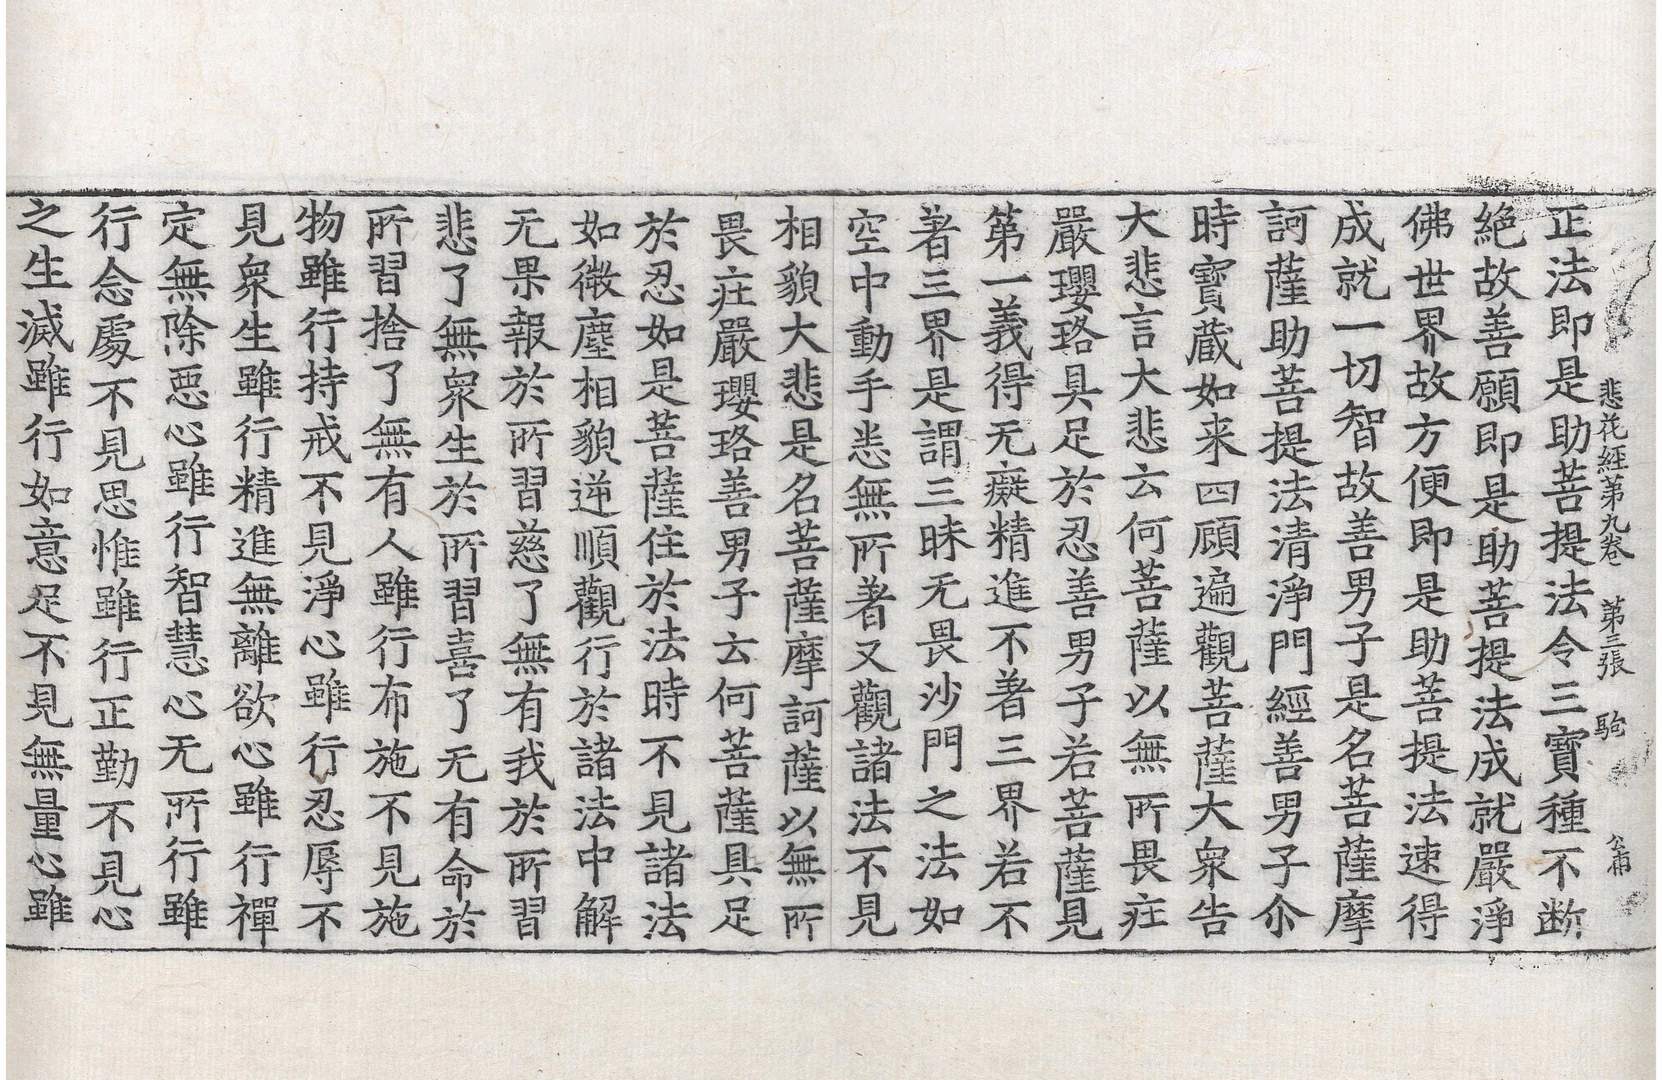 悲花經第九卷　第三張　駒　公甫
正法即是助菩提法令三寶種不断
絶故善願即是助菩提法成就嚴淨
佛世界故方便即是助菩提法速得
成就一切智故善男子是名菩薩摩
訶薩助菩提法清淨門經善男子尒
時寶蔵如来四顧遍觀菩薩大衆告
大悲言大悲云何菩薩以無所畏莊
嚴瓔珞具足於忍善男子若菩薩見
第一義得无癡精進不著三界若不
著三界是謂三昧无畏沙門之法如
空中動手悉無所著又觀諸法不見
相貌大悲是名菩薩摩訶薩以無所
畏莊嚴瓔珞善男子云何菩薩具足
於忍如是菩薩住於法時不見諸法
如微塵相貌逆順觀行於諸法中解
无果報於所習慈了無有我於所習
悲了無衆生於所習喜了无有命於
所習捨了無有人雖行布施不見施
物雖行持戒不見淨心雖行忍辱不
見衆生雖行精進無離欲心雖行禪
定無除惡心雖行智慧心无所行雖
行念處不見思惟雖行正勤不見心
之生滅雖行如意足不見無量心雖